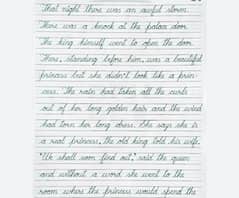 That night there was an awful storm.
There was a knock at the palace door.
The king himself went to open the door.
There, standing before him, was a beautiful
princess but she didn't look like a prin-
cess. The rain had taken all the curls
out of her long golden hair and the wind
had torn her long dress. She says she is
a real princess, the old king told his wife.
"We shall soon find out," said the queen
and without a word she went to the
room where the princess would spend the